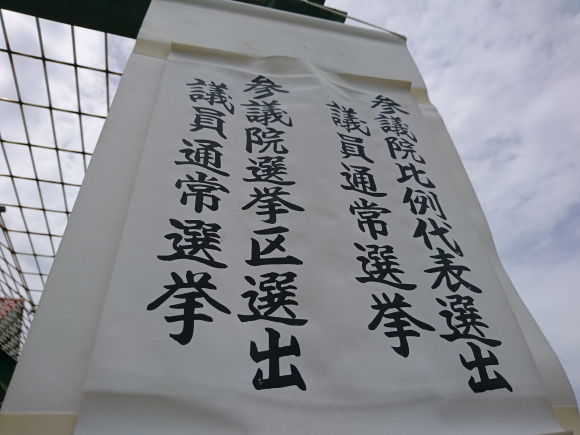 参議院比例代表選出
議員通常選挙
参議院選挙区選出
議員通常選挙